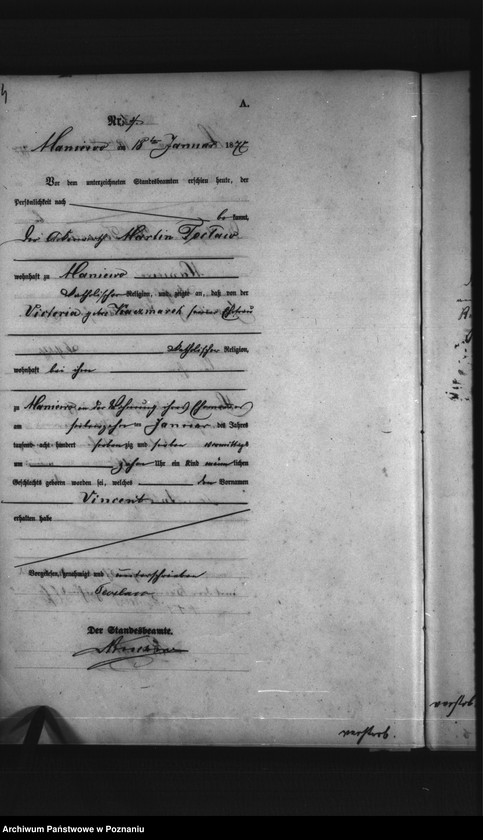 A.
Nr. 4
Maniewo am 18ten Januar 1877
Vor dem unterzeichneten Standesbeamten erschien heute, der
Persönlichkeit nach
bekannt,
der Ackerwirth Martin
wohnhaft zu Maniewo
katholischer Religion, und zeigte an, daß von der
Victoria geb. Kaczmarek seiner Ehefrau
katholischer Religion,
wohnhaft bei ihm
zu Maniewo in der Wohnung ihres Ehemannes
am siebenzehnten Januar des Jahres
tausend acht hundert siebenzig und sieben vormittags
um zehn Uhr ein Kind männlichen
Geschlechts geboren worden sei, welches den Vornamen
Vincent
erhalten habe
Vorgelesen, genehmigt und unterschrieben
Der Standesbeamte.
verstorb.
verstorb
Archiwum Państwowe w Poznaniu